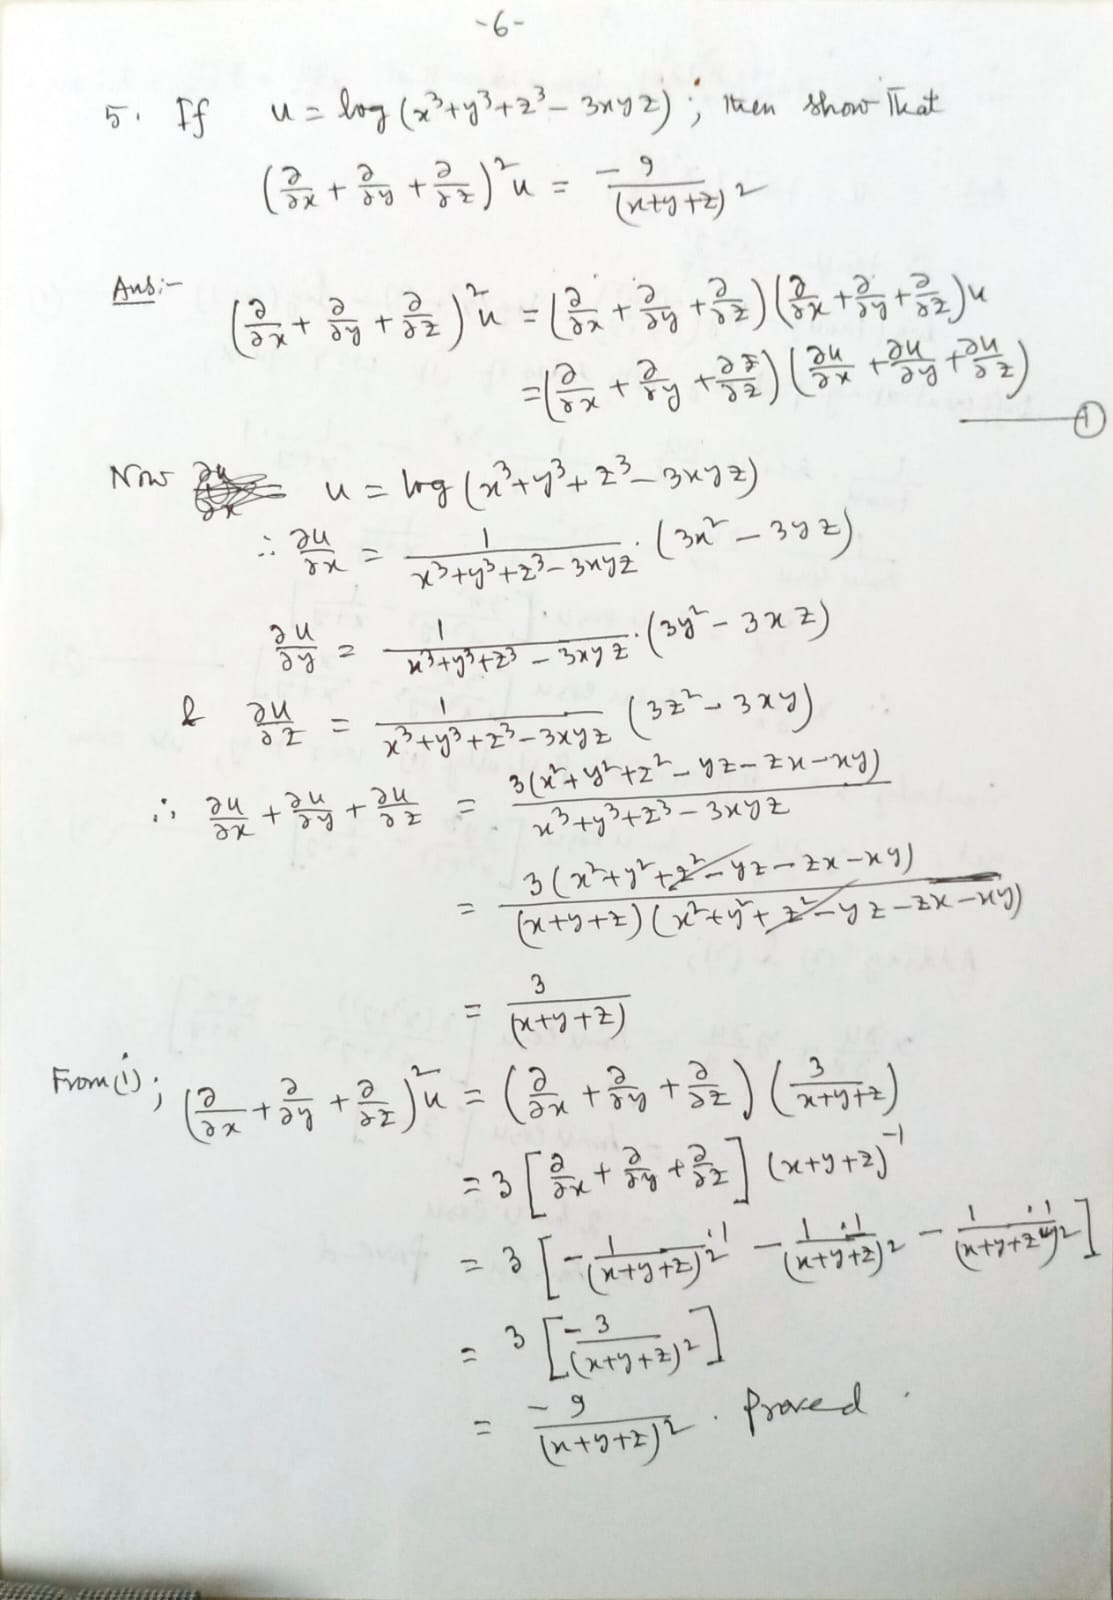 -6-
5. If u = log (x³+y³+z³ - 3xyz) ; then show that
(∂/∂x + ∂/∂y + ∂/∂z)² u = -9/(x+y+z)²
Ans:- (∂/∂x + ∂/∂y + ∂/∂z)² u = (∂/∂x + ∂/∂y + ∂/∂z) (∂/∂x + ∂/∂y + ∂/∂z) u
= (∂/∂x + ∂/∂y + ∂/∂z) (∂u/∂x + ∂u/∂y + ∂u/∂z)
—— ①
Now u = log (x³+y³+z³ - 3xyz)
∴ ∂u/∂x = 1/(x³+y³+z³ - 3xyz) · (3x² - 3yz)
∂u/∂y = 1/(x³+y³+z³ - 3xyz) · (3y² - 3xz)
& ∂u/∂z = 1/(x³+y³+z³ - 3xyz) (3z² - 3xy)
∴ ∂u/∂x + ∂u/∂y + ∂u/∂z = 3(x²+y²+z² - yz - zx - xy)/(x³+y³+z³ - 3xyz)
= 3(x²+y²+z² - yz - zx - xy)/((x+y+z)(x²+y²+z² - yz - zx - xy))
= 3/(x+y+z)
From (i) ; (∂/∂x + ∂/∂y + ∂/∂z)² u = (∂/∂x + ∂/∂y + ∂/∂z) (3/(x+y+z))
= 3 [∂/∂x + ∂/∂y + ∂/∂z] (x+y+z)⁻¹
= 3 [-1/(x+y+z)² ·1 - 1/(x+y+z)² ·1 - 1/(x+y+z)² ·1]
= 3 [-3/(x+y+z)²]
= -9/(x+y+z)² . Proved .